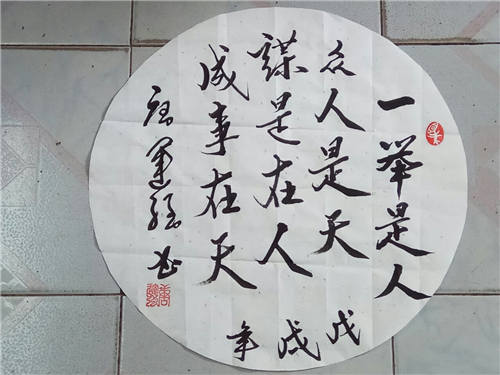 一举是人
众人是天
謀是在人
成事在天
戊戌年
唐運书